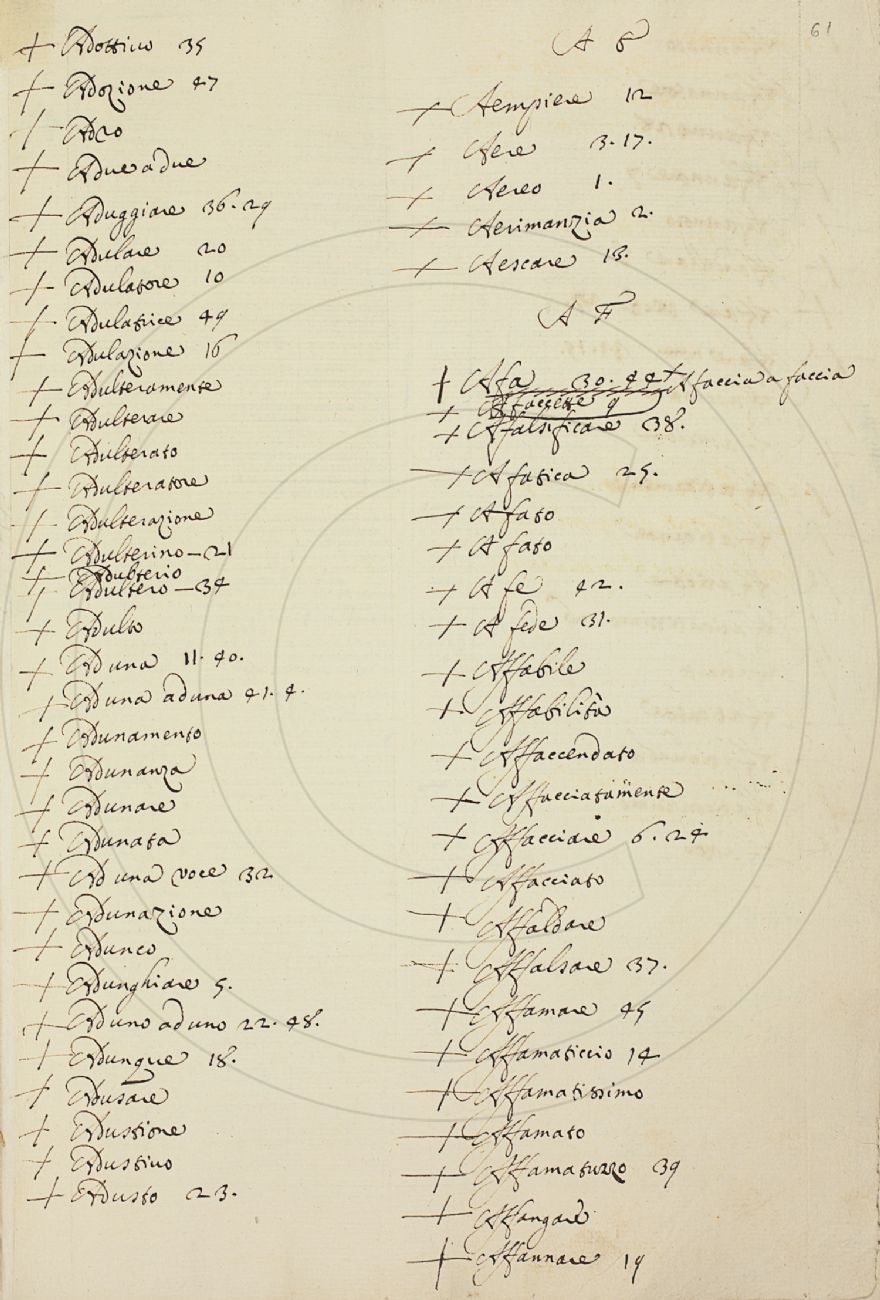 61
+ Adottivo 35
+ Adozione 47
+ Adro
+ Adue adue
+ Aduggiare 36. 29
+ Adulare 20
+ Adulatore 10
+ Adulatrice 49
+ Adulazione 16
+ Adulteramente
+ Adulterare
+ Adulterato
+ Adulteratore
+ Adulterazione
+ Adulterino — 21
+ Adulterio
+ Adultero — 34
+ Adulto
+ Ad una 11. 40.
+ Ad una ad una 41. 4.
+ Adunamento
+ Adunanza
+ Adunare
+ Adunata
+ Ad una voce 32
+ Adunazione
+ Adunco
+ Adunghiare 5.
+ Ad uno ad uno 22. 48.
+ Adunque 18.
+ Adusare
+ Adustione
+ Adustivo
+ Adusto 23.
A E
+ Aempiere 12
+ Aere 3. 17.
+ Aereo 1.
+ Aerimanzia 2.
+ Aescare 13.
A F
+ Afa 30. 44 + Afaccia a faccia
+ Afaccette 9
+ Afalsificare 38.
+ A fatica 25.
+ A fato
+ A fato
+ A fe 42.
+ A fede 31.
+ Affabile
+ Affabilità
+ Affaccendato
+ Affacciatamente
+ Affacciare 6. 24
+ Affacciato
+ Affaldare
+ Affalsare 37.
+ Affamare 45
+ Affamaticcio 14
+ Affamatissimo
+ Affamato
+ Affamatuzzo 39
+ Affangare
+ Affannare 19